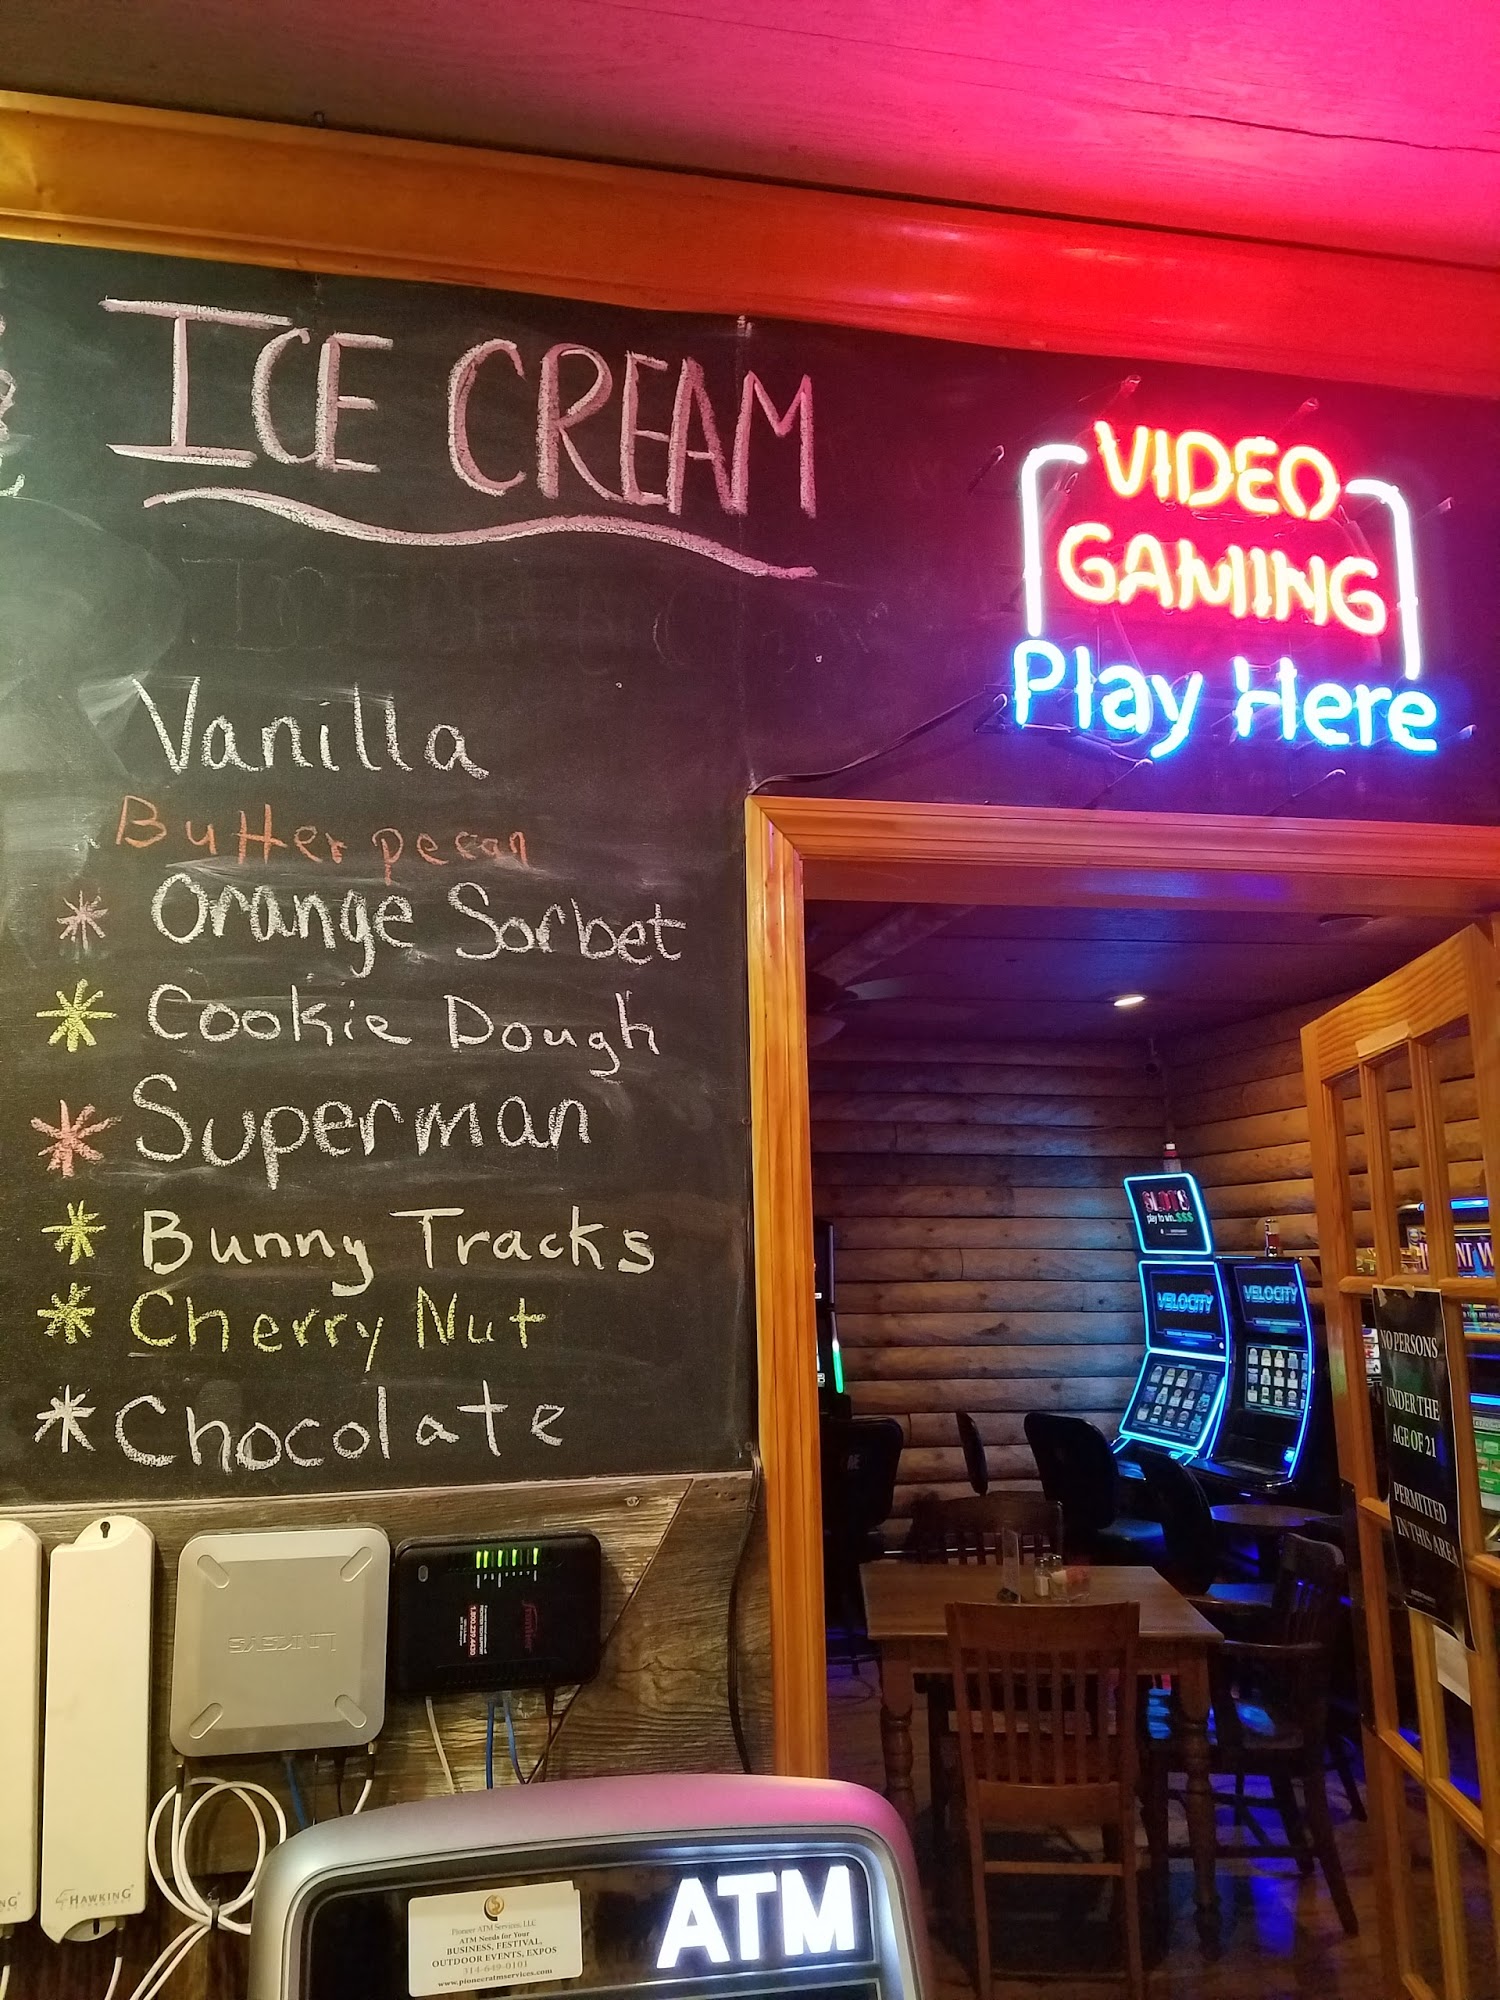 ICE CREAM
Vanilla
Butter pecan
* Orange Sorbet
* Cookie Dough
* Superman
* Bunny Tracks
* Cherry Nut
* Chocolate
VIDEO
GAMING
Play Here
SLOTS
play to win..$$$
VELOCITY
VELOCITY
NO PERSONS
UNDER THE
AGE OF 21
PERMITTED
IN THIS AREA
LINKSYS
1.800.239.4430
HAWKING
ATM
Pioneer ATM Services, LLC
ATM Needs for Your
BUSINESS, FESTIVAL,
OUTDOOR EVENTS, EXPOS
314-649-0101
www.pioneeratmservices.com